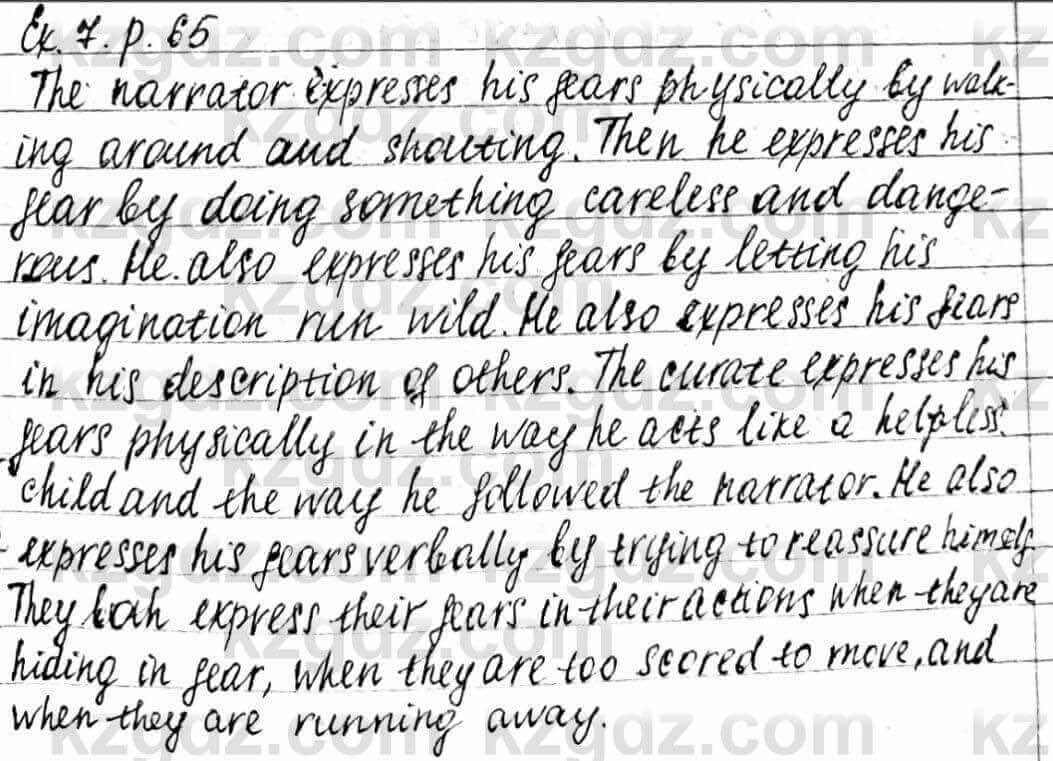 Ex. 7. p. 65
The narrator expresses his fears physically by walk-
ing around and shouting. Then he expresses his
fear by doing something careless and dange-
rous. He also expresses his fears by letting his
imagination run wild. He also expresses his fears
in his description of others. The curate expresses his
fears physically in the way he acts like a helpless
child and the way he followed the narrator. He also
expresses his fears verbally by trying to reassure himself.
They both express their fears in their actions when they are
hiding in fear, when they are too scored to move, and
when they are running away.